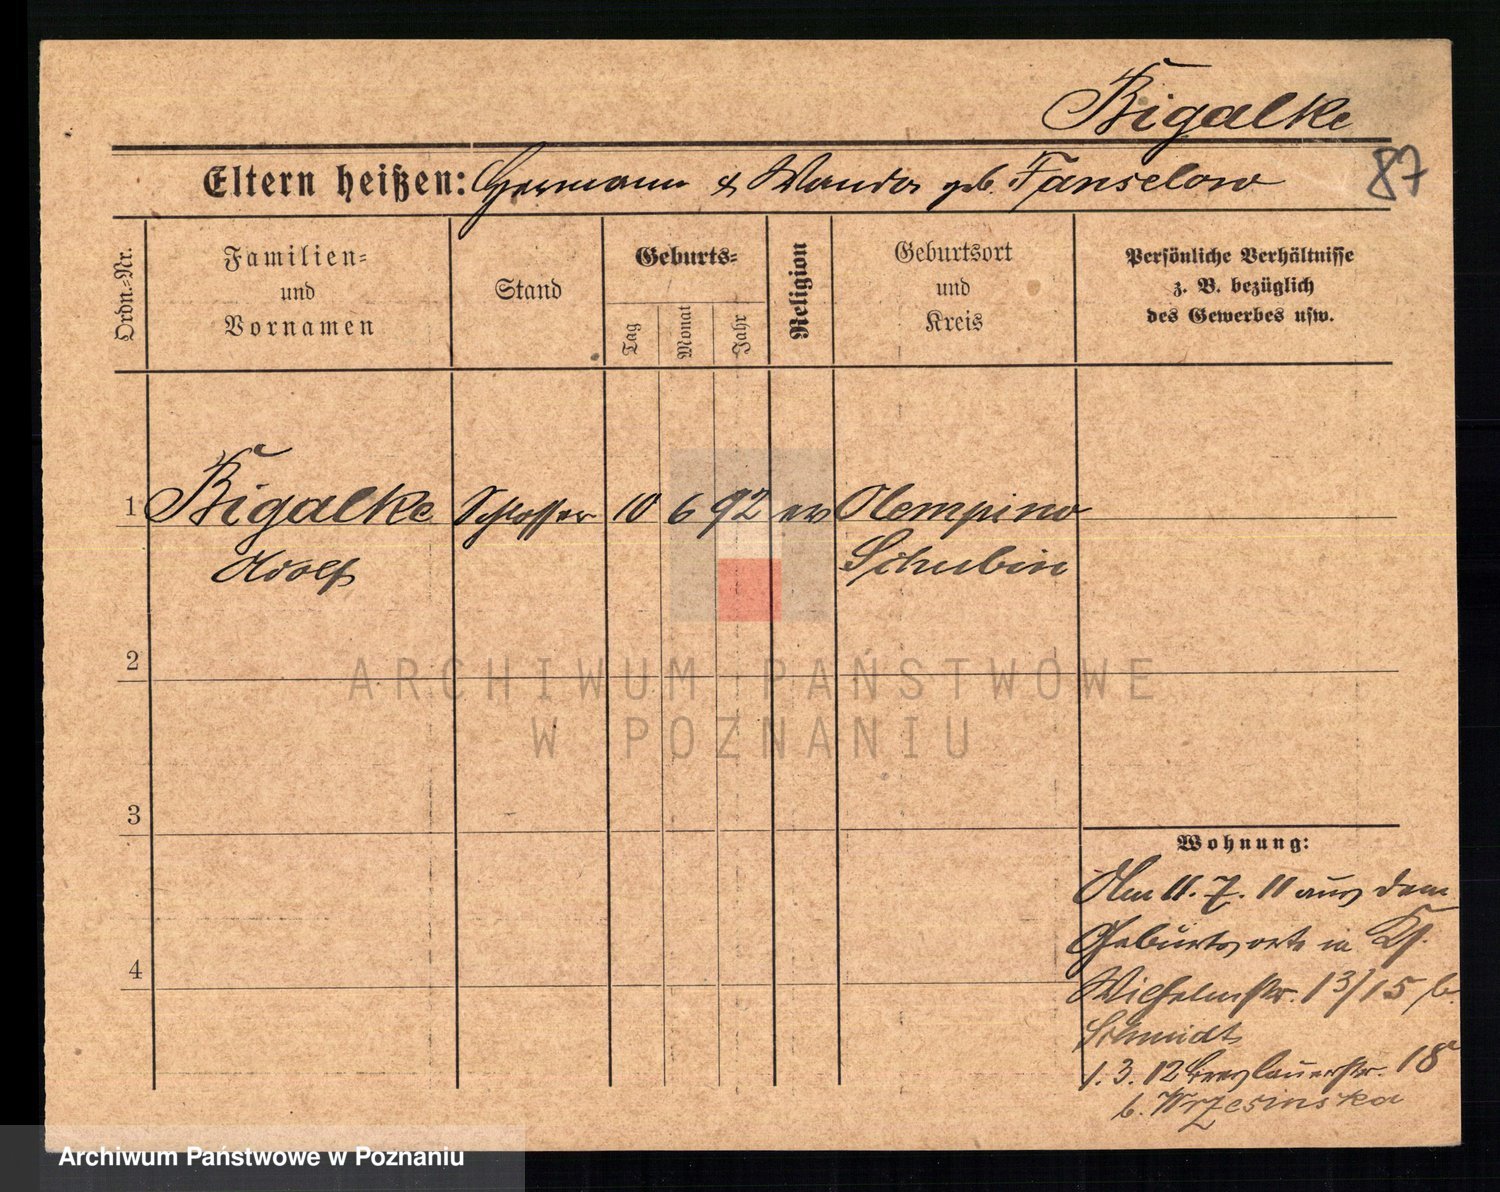 Bigalke
87
Eltern heißen: Hermann & Wanda geb. Fanselow
Ordn.-Nr.
Familien-
und
Vornamen
Stand
Geburts-
Tag
Monat
Jahr
Religion
Geburtsort
und
Kreis
Persönliche Verhältnisse
z. B. bezüglich
des Gewerbes usw.
1 Bigalke Schlosser 10 6 92 ev Olempino
Adolf Schubin
2
ARCHIWUM PAŃSTWOWE
W POZNANIU
3
Wohnung:
Am 11. 7. 11 aus dem
Geburtsorte in
4
Wilhelmstr. 13/15 b.
Schmidt
1. 3. 12 Breslauerstr. 18
b. Wrzesinska
Archiwum Państwowe w Poznaniu